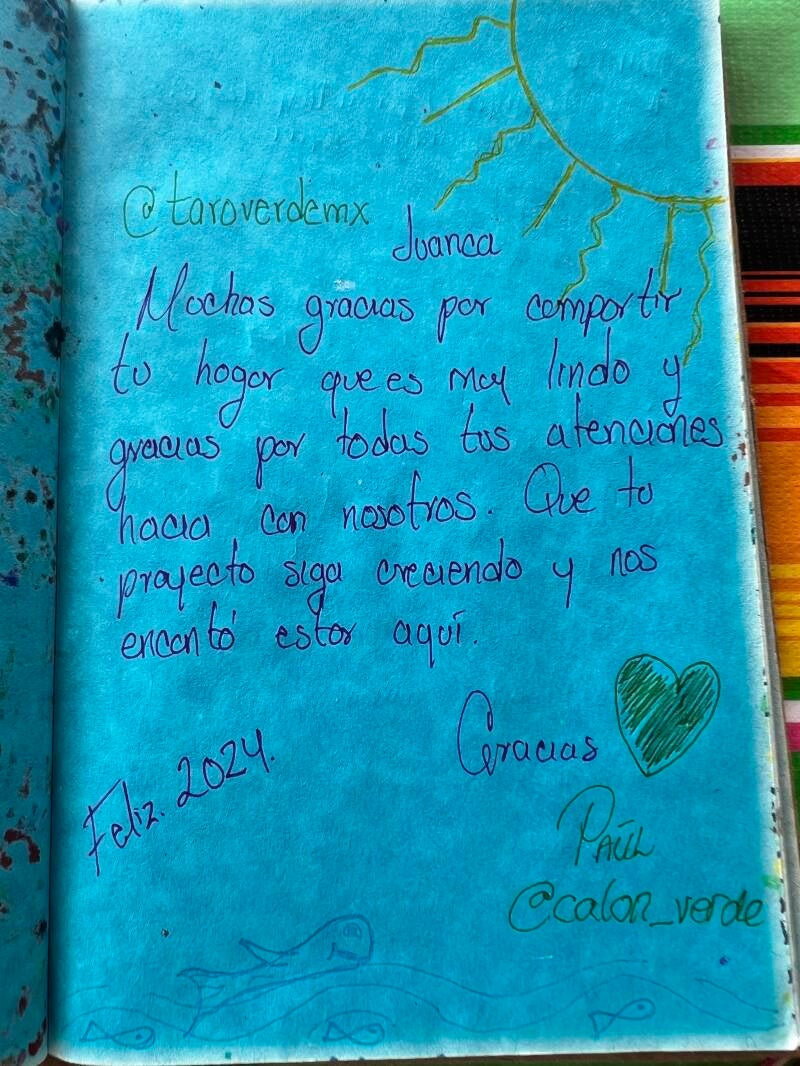 @taroverdemx
Juanca
Muchas gracias por compartir
tu hogar que es muy lindo y
gracias por todas tus atenciones
hacia con nosotros. Que tu
proyecto siga creciendo y nos
encantó estar aquí.
Gracias
Feliz. 2024.
PAÚL
@calon_verde